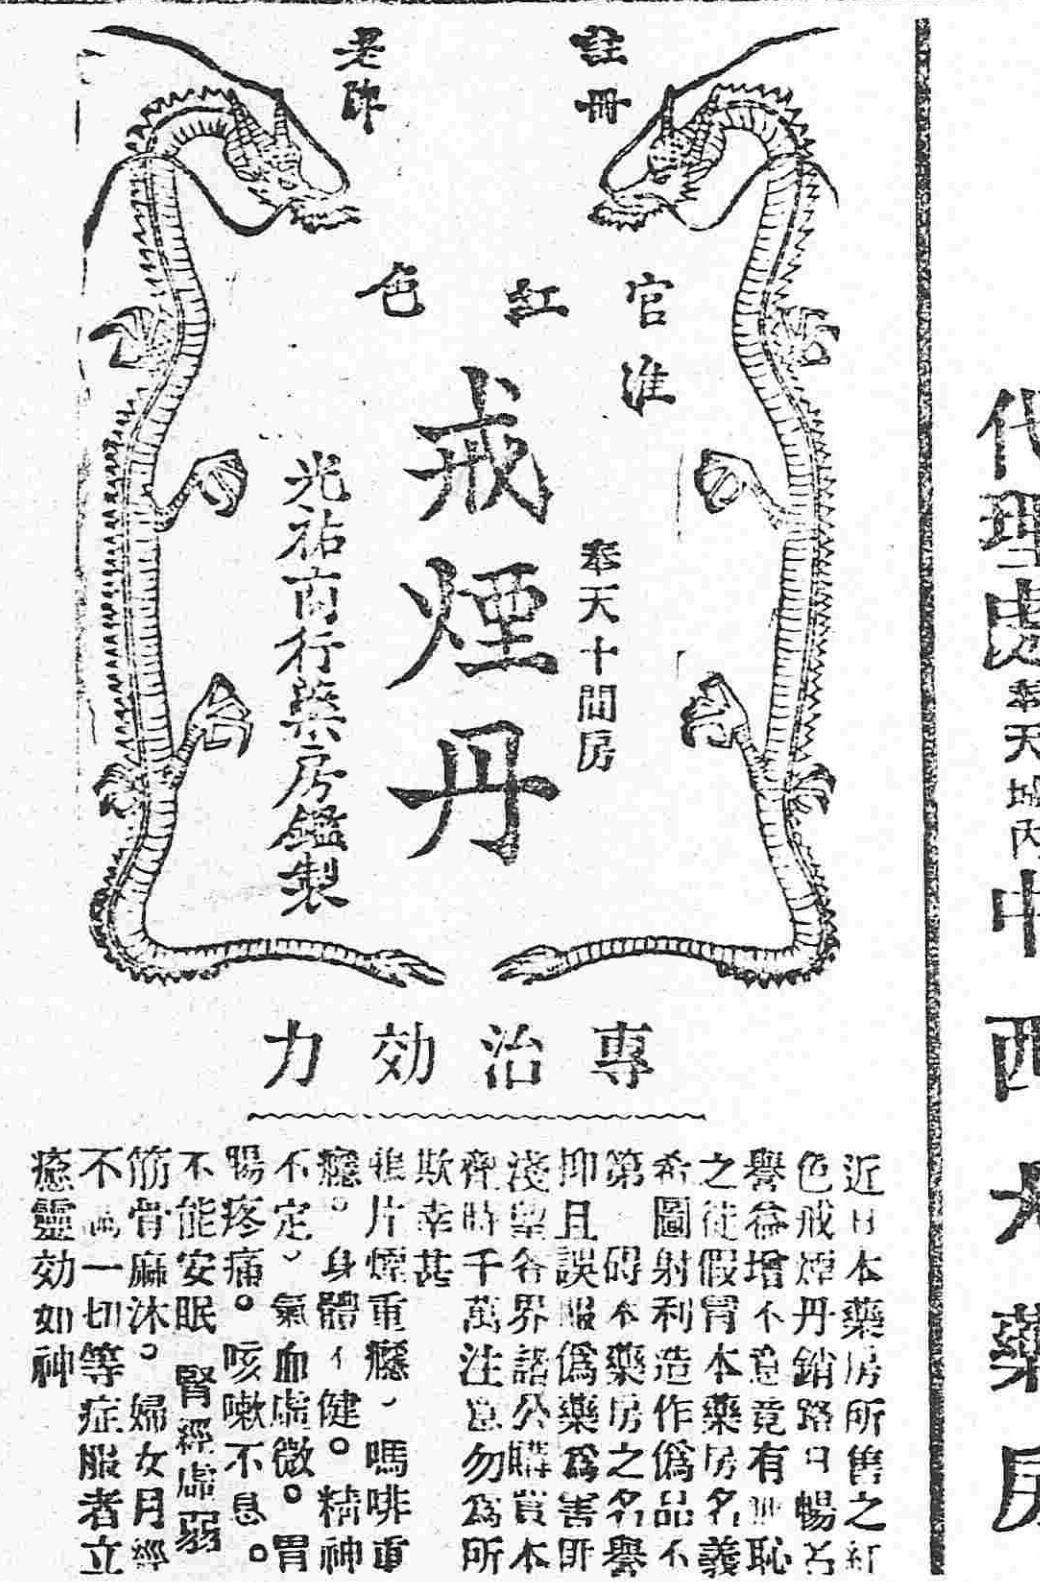 註冊
老師
官准
紅色
奉天十間房
戒煙丹
光祐商行藥房鑑製
專治効力
近日本藥房所售之紅
色戒煙丹銷路日暢名
譽益增不意竟有無恥
之徒假冒本藥房名義
希圖射利造作偽品不
第碍本藥房之名譽
抑且誤服偽藥為害匪
淺望各界諸公購買本
齊時千萬注意勿為所
欺幸甚
鴉片煙重癮、嗎啡重
癮。身體不健。精神
不定、氣血虛微。胃
腸疼痛。咳嗽不息。
不能安眠 腎經虛弱
筋骨麻沐。婦女月經
不調一切等症服者立
癒靈効如神
代理處
奉天城內
中西大藥房